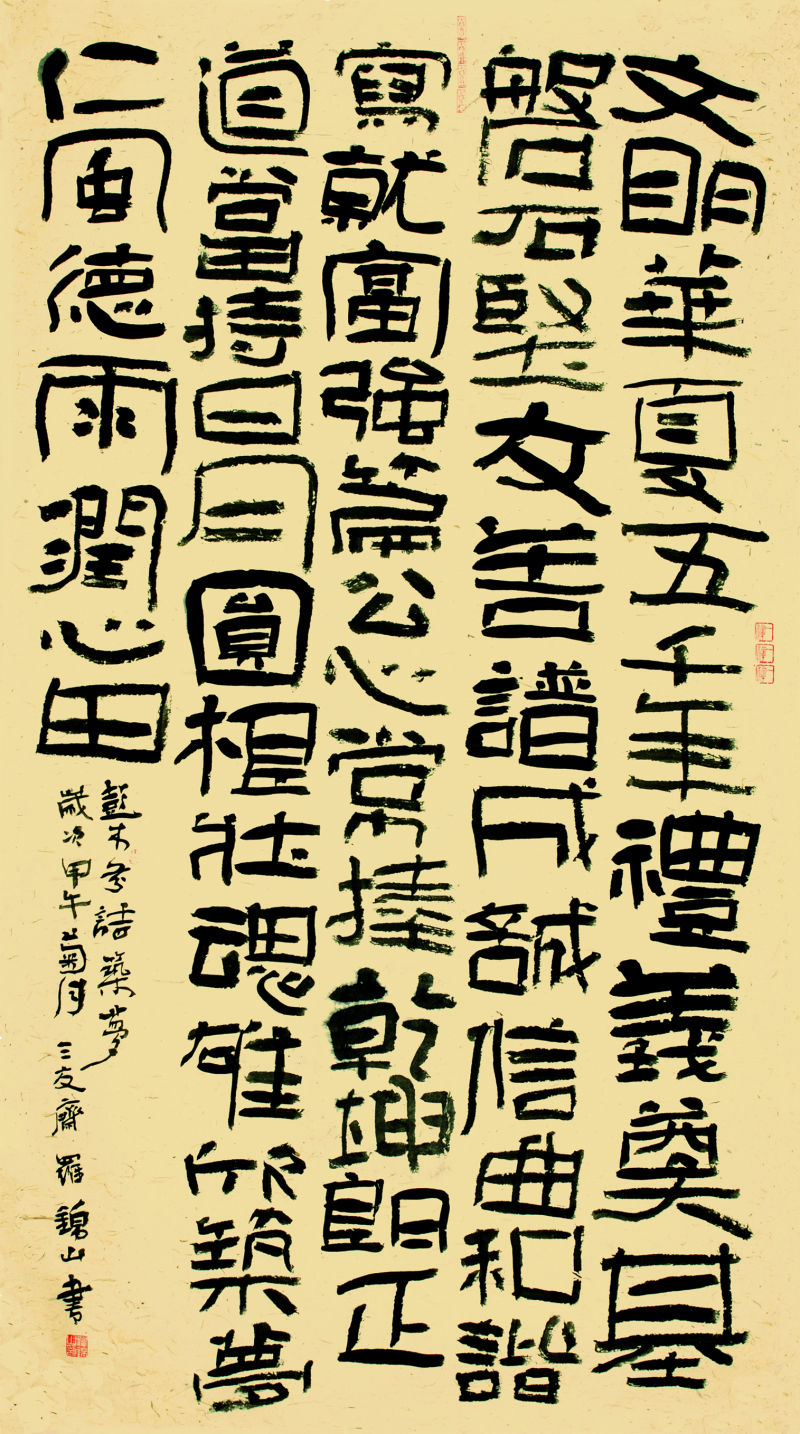 文明華夏五千年禮義奠基
磐石堅友善譜成誠信曲和諧
寫就富強篇公心常捧乾坤朗正
道當持日月圓根壯魂雄欣築夢
仁風德雨潤心田
彭木築夢
歲次甲午菊月 三友齋 羅錦山書